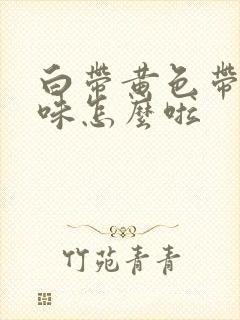 白帶黄色帶
味怎麼啦
竹苑青青